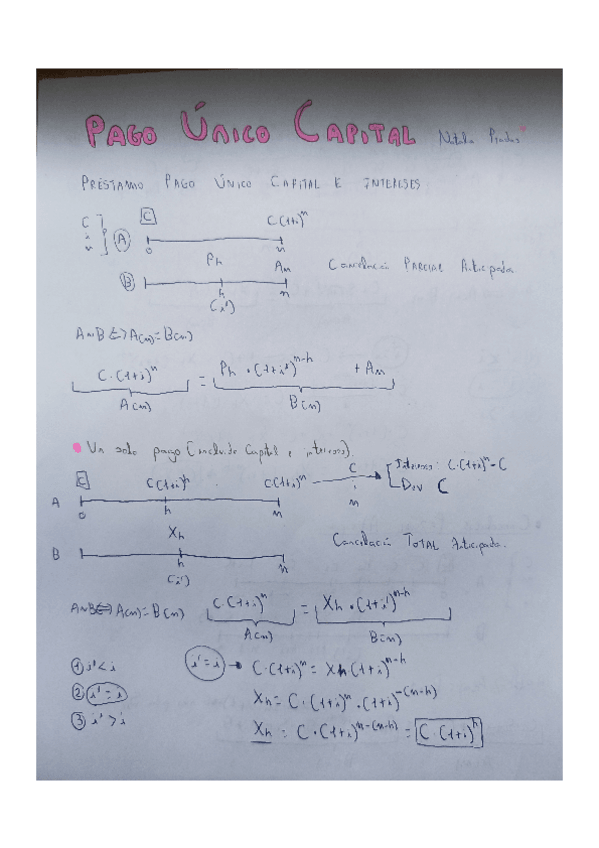 PAGO ÚNICO CAPITAL Natalia Prados
PRÉSTAMO PAGO ÚNICO CAPITAL E INTERESES
C C C(1+i)^n
i A
n 0 n
Ph An Cancelación PARCIAL Anticipada
B
h n
(i')
A~B <=> A(n)=B(n)
C·(1+i)^n = Ph·(1+i')^n-h + An
A(n) B(n)
Un solo pago (incluido Capital e intereses).
C C(1+i)^h C(1+i)^n C Intereses: C·(1+i)^n-C
i Dev C
A n
0 h n
Xh Cancelación TOTAL Anticipada.
B
h n
(i')
A~B<=>A(n)=B(n) C·(1+i)^n = Xh·(1+i')^n-h
A(n) B(n)
① i'<i i'=i → C·(1+i)^n = Xh(1+i)^n-h
② i'=i Xh = C·(1+i)^n·(1+i)^-(n-h)
③ i'>i Xh = C·(1+i)^n-(n-h) = C·(1+i)^h